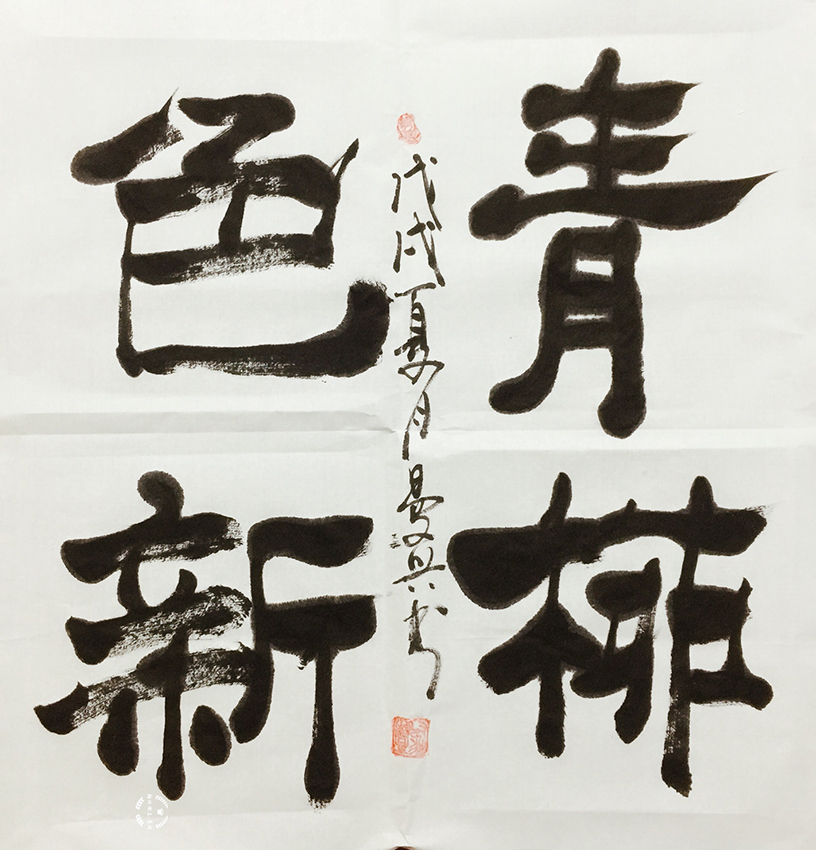 青柳
色新
戊戌夏月曼书